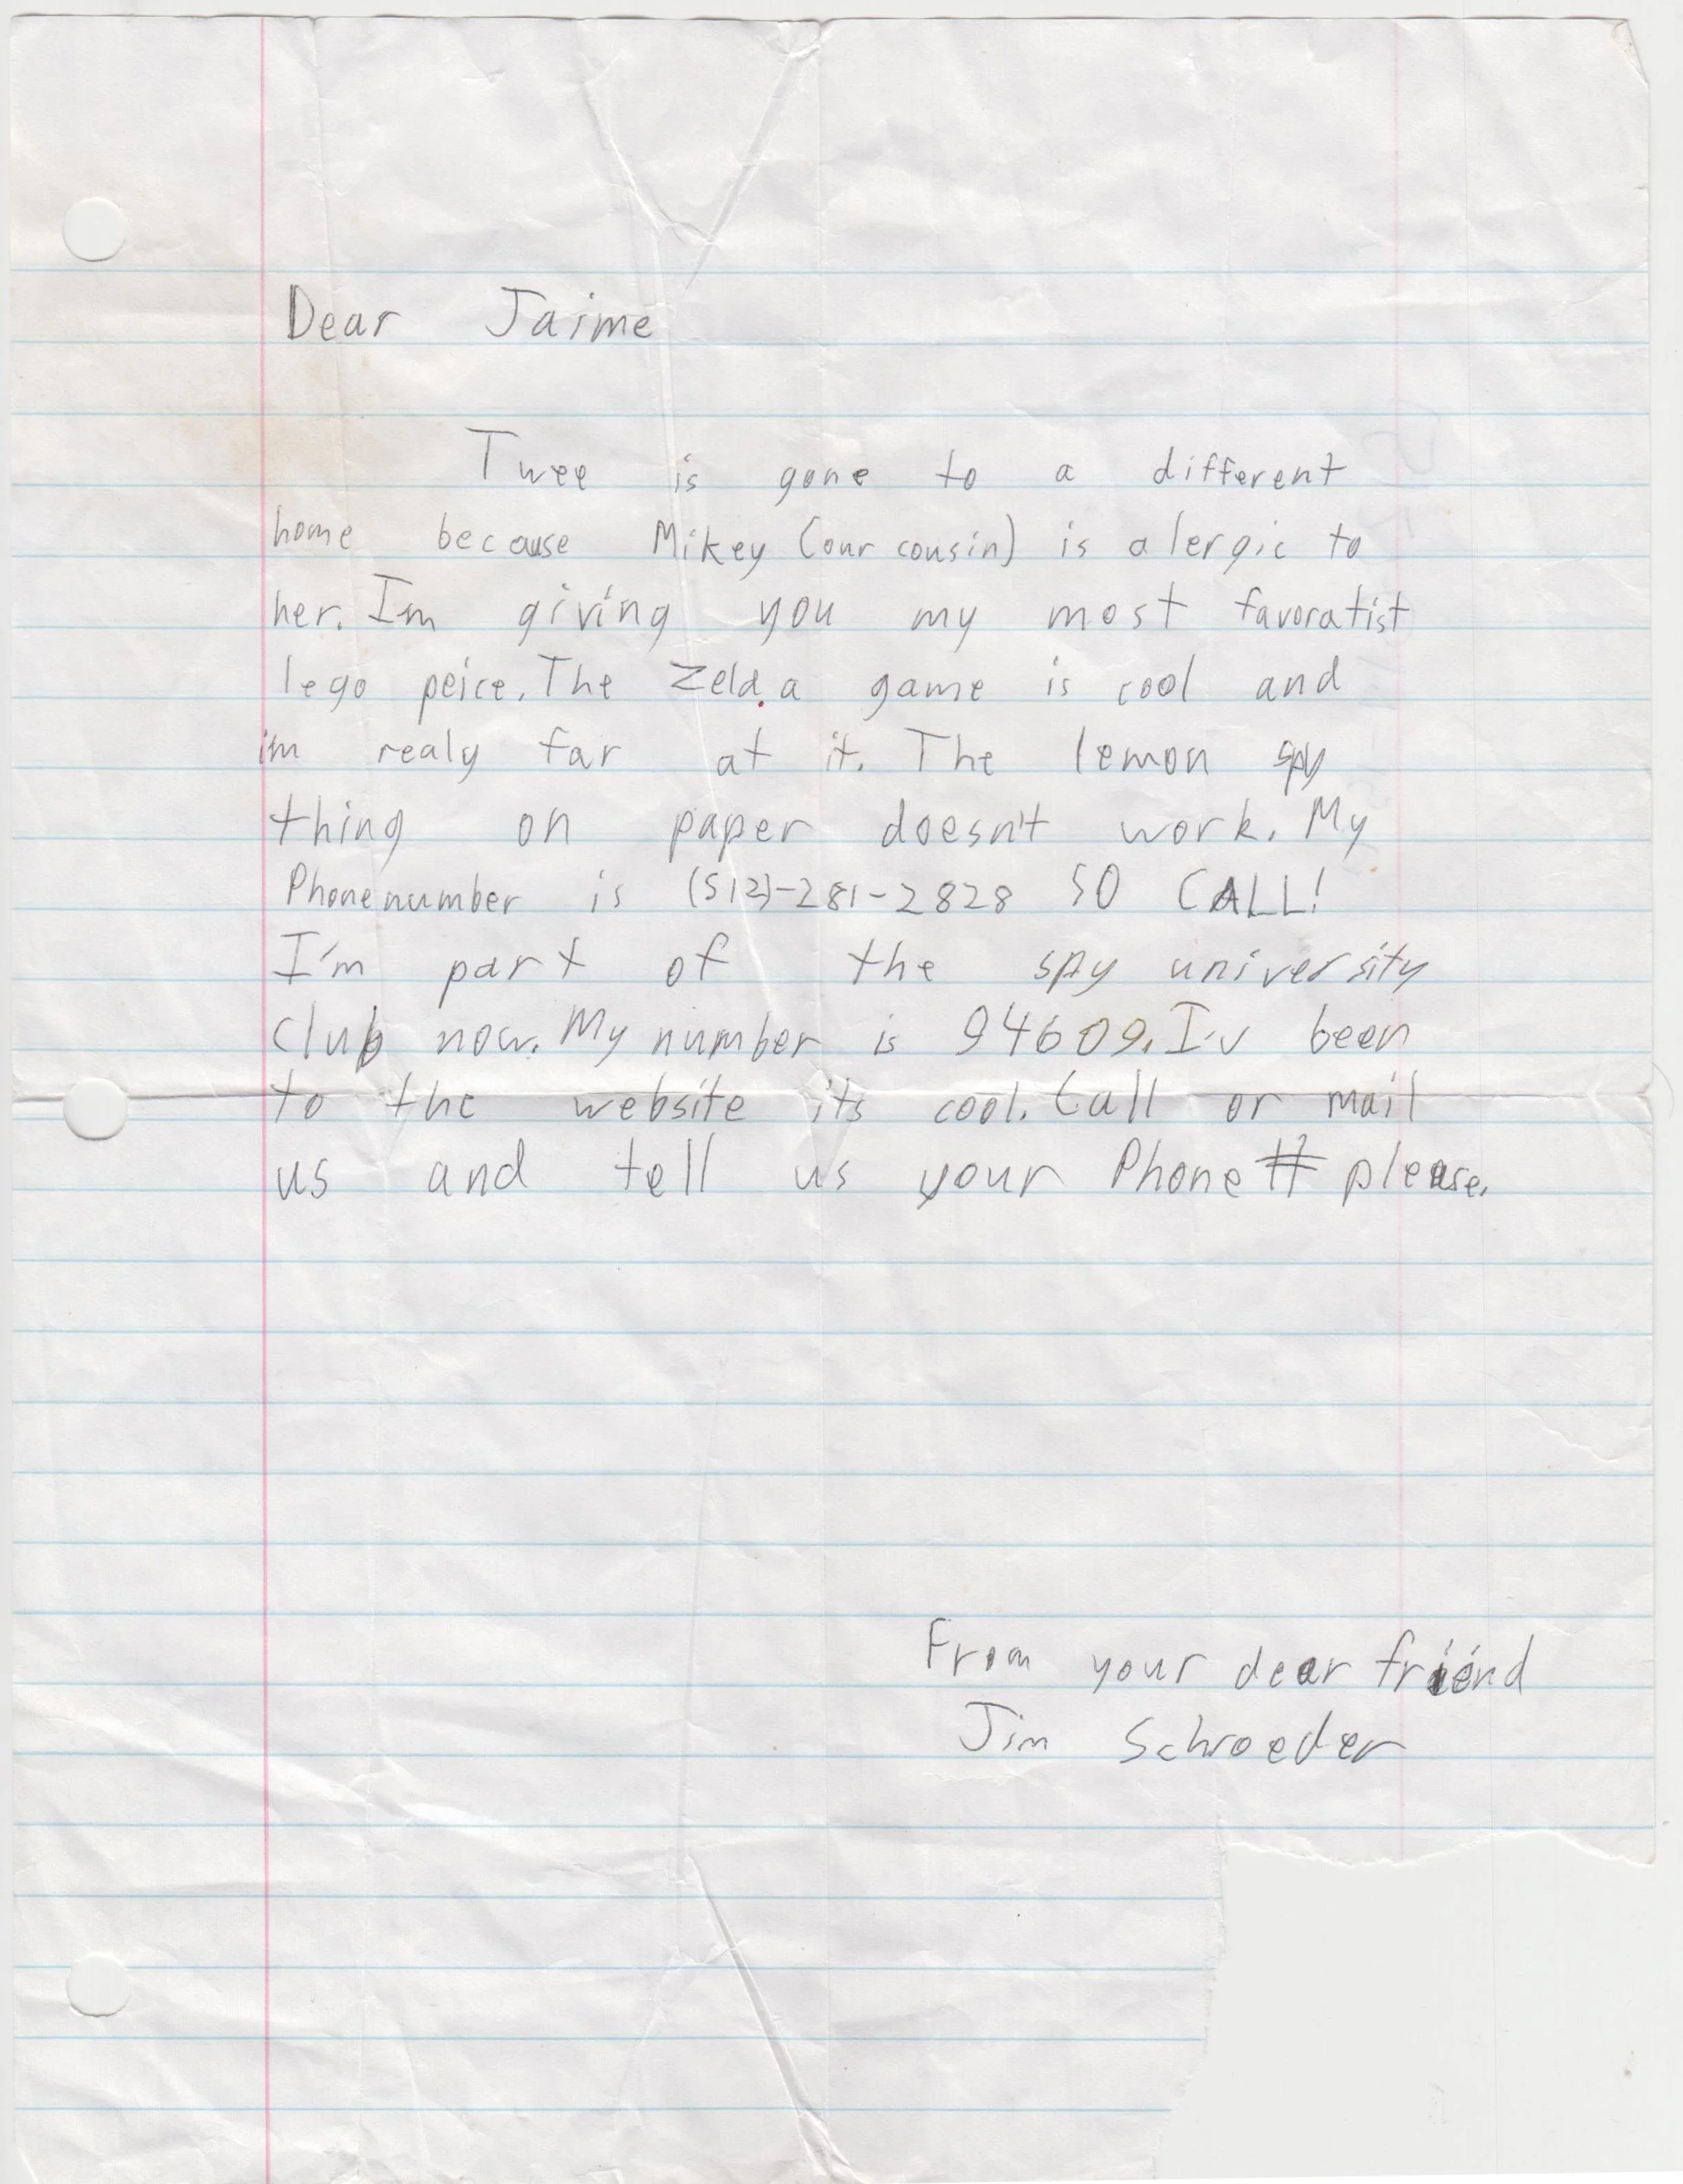 Dear Jaime
Twee is gone to a different
home because Mikey (our cousin) is alergic to
her. Im giving you my most favoratist
lego peice. The Zelda game is cool and
im realy far at it. The lemon spy
thing on paper doesn't work. My
Phone number is (512)-281-2828 SO CALL!
I'm part of the spy university
club now. My number is 94609. I'v been
to the website its cool. Call or mail
us and tell us your Phone # please.
From your dear friend
Jim Schroeder